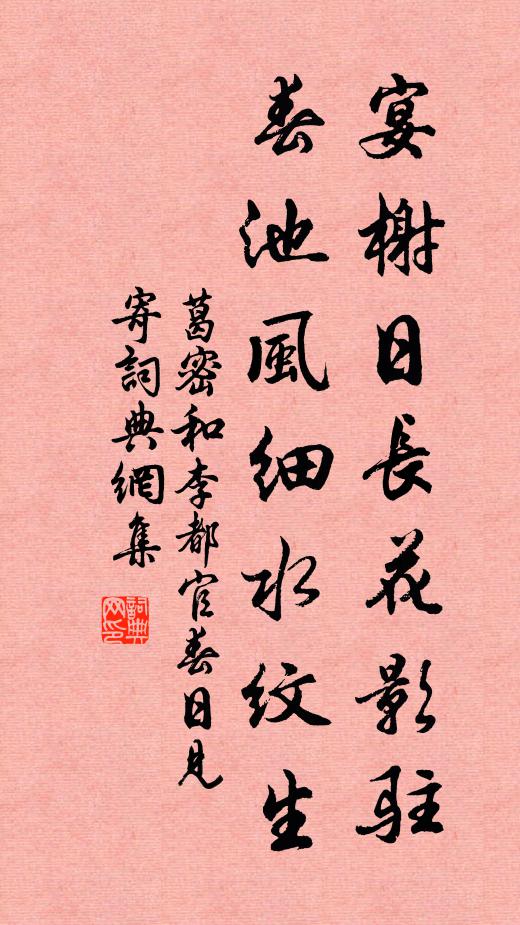 宴榭日長花影駐
春池風細水紋生
葛密和李都官春日見
寄詞典網集
詞典网印